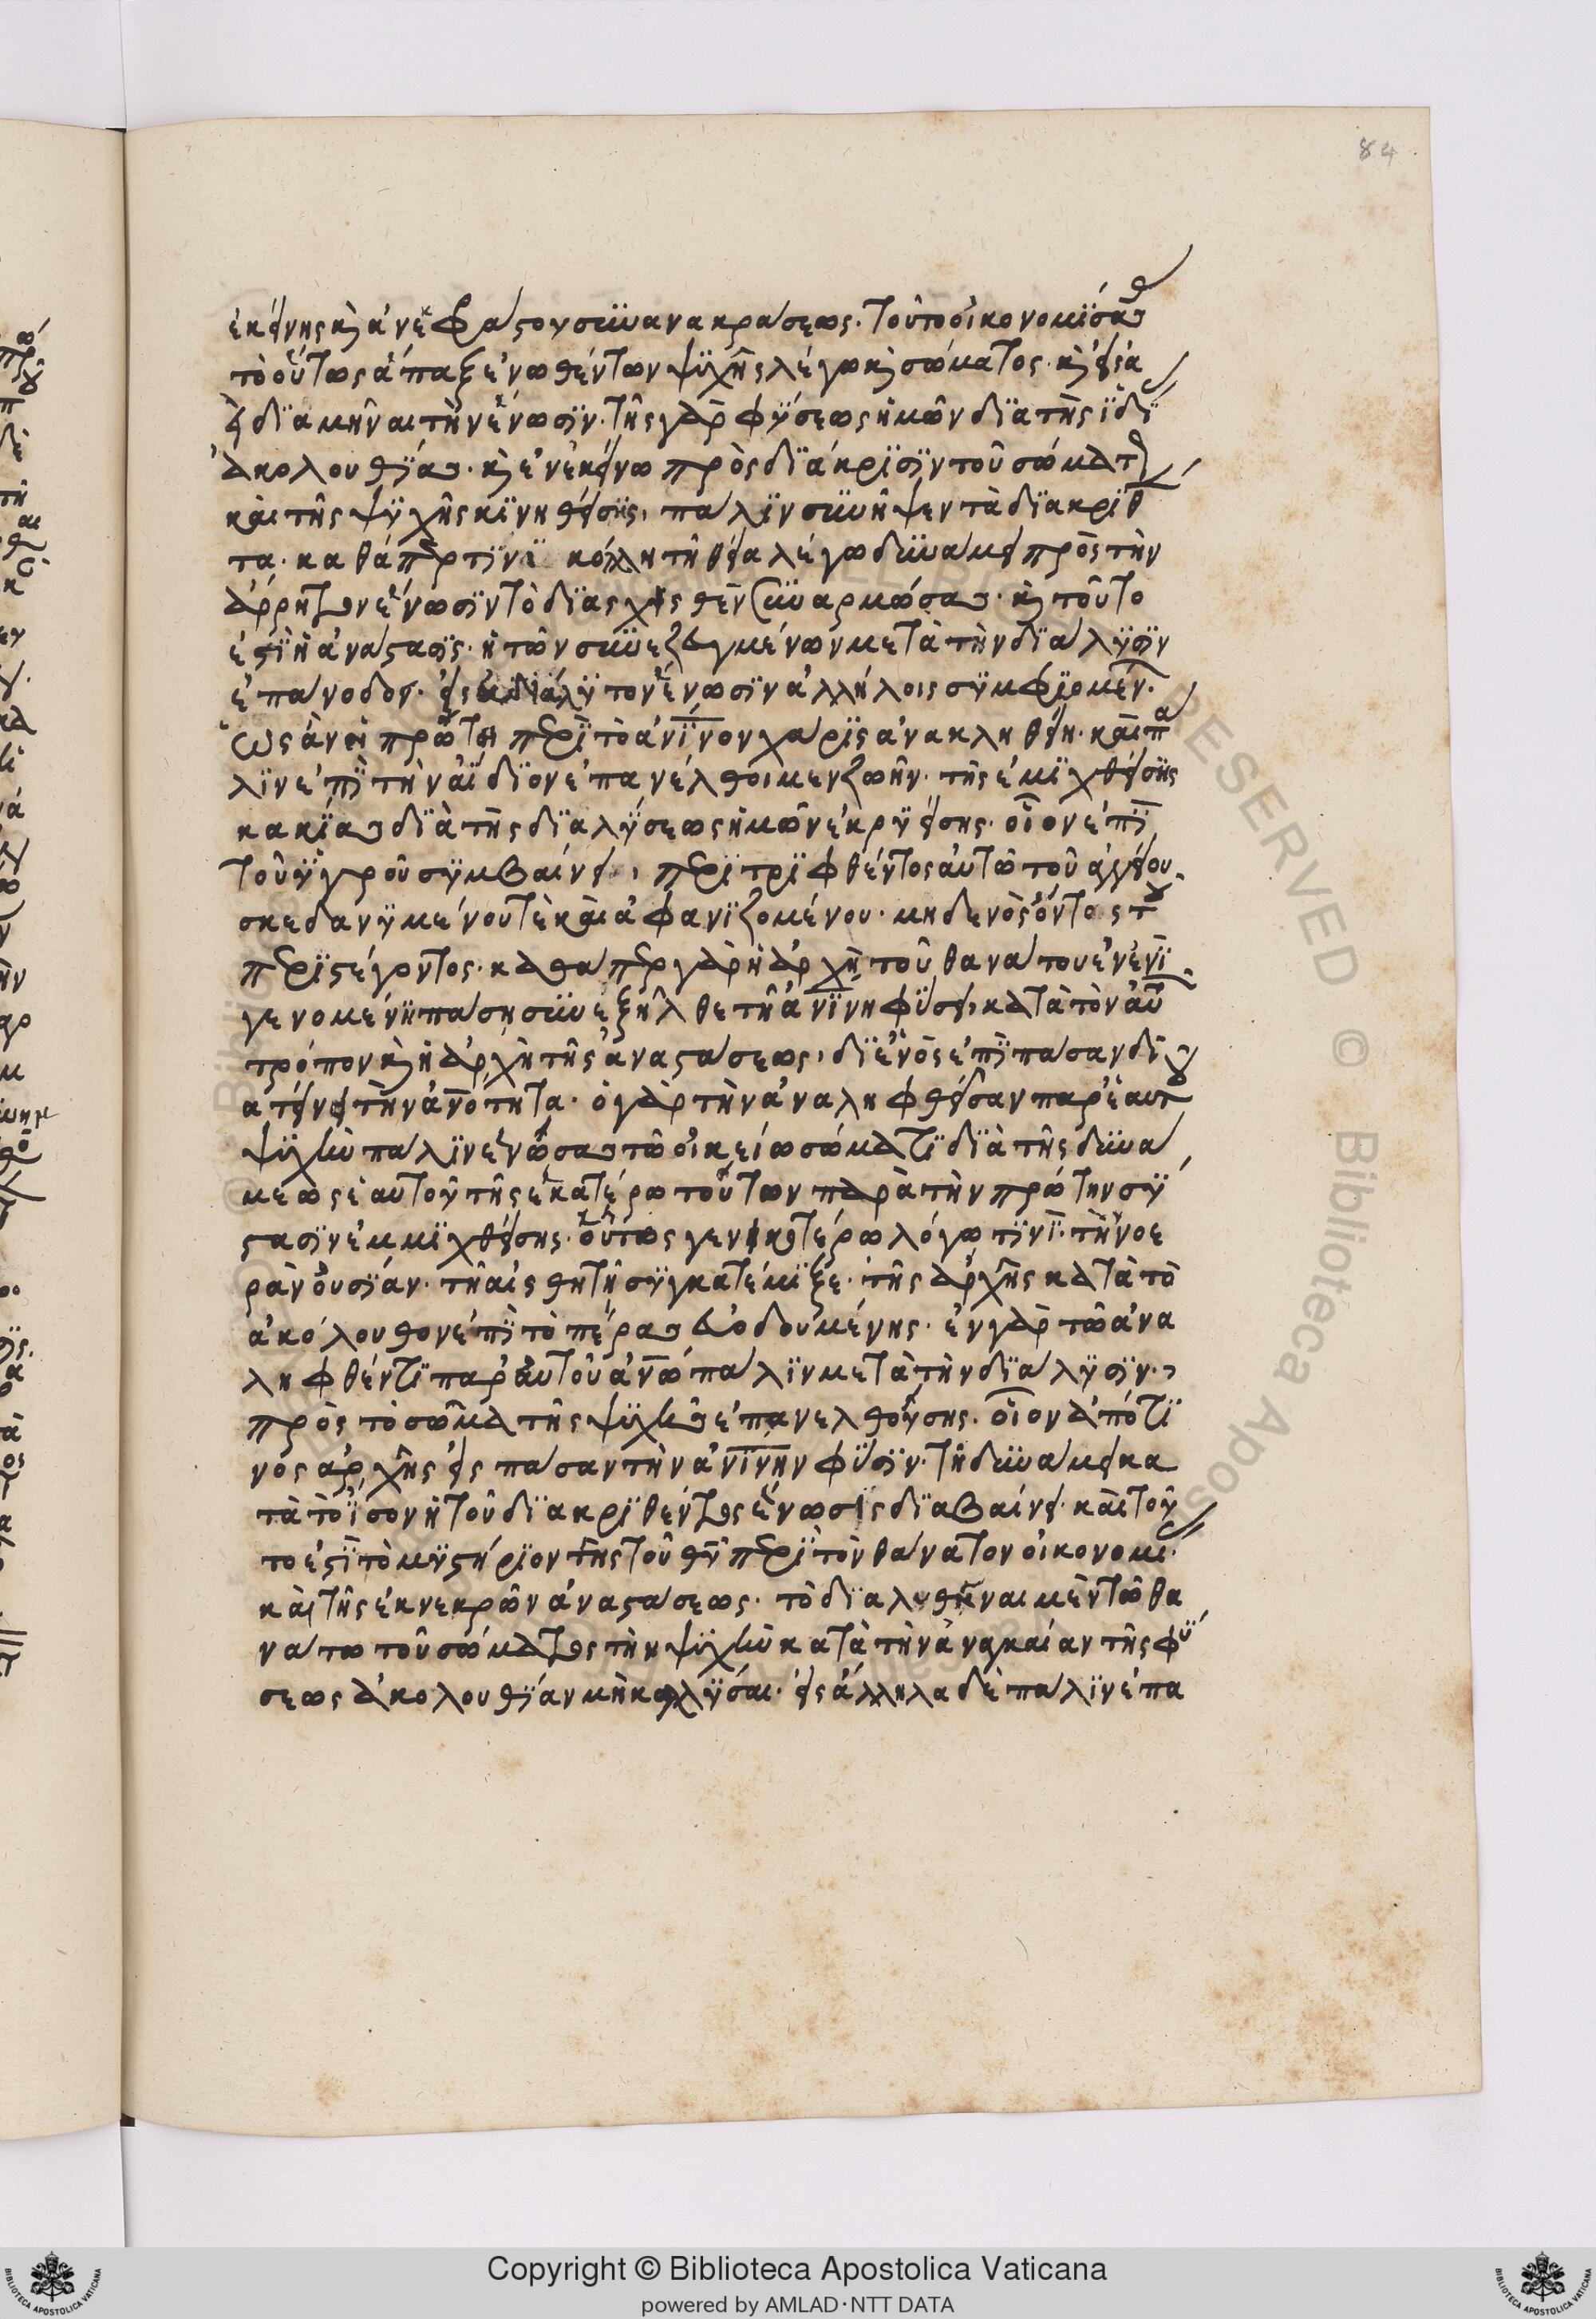 84
ἐκείνης κὶ ἀνεκφράστου συνανακράσεως. τοῦτο οἰκονομίσας
τὸ οὕτως ἅπαξ ἑνωθέντων ψυχῆς λέγω κὶ σώματος. κὶ εἰσά
διαμῆναι τὴν ἕνωσιν. τῆς γὰρ φύσεως ἡμῶν διὰ τῆς ἰδί
ἀκολουθίας. κὶ ἐν ἐκείνω πρὸς διάκρισιν τοῦ σώματ
καὶ τῆς ψυχῆς κινηθείσης, πάλιν συνῆψεν τὰ διακριθ
τα. καθάπερ τινὶ κόλλη τῆ θεία λέγω δυνάμει πρὸς τὴν
ἄρρητον ἕνωσιν τὸ διασχισθὲν συναρμώσας. κὶ τοῦτο
ἐστὶ ἡ ἀνάστασις. ἡ τῶν συνεζευγμένων μετὰ τὴν διάλυσιν
ἐπάνοδος. εἰς ἀδιάλυτον ἕνωσιν ἀλλήλοις συμφυομέν.
ὡς ἂν ἡ πρώτη περὶ τὸ ἀνινον χάρις ἀνακληθείη. καὶ πά
λιν ἐπὶ τὴν ἀΐδιον ἐπανέλθοιμεν ζωήν. τῆς ἐμιχθείσης
κακίας διὰ τῆς διαλύσεως ἡμῶν ἐκρυείσης. οἷον ἐπὶ
τοῦ ὑγροῦ συμβαίνει, περιτριφθέντος αὐτῶ τοῦ ἀγγείου
σκεδανυμένου τὲ καὶ ἀφανιζομένου. μηδενὸς ὄντος τοῦ
περιστέγοντος. καθάπερ γὰρ ἡ ἀρχὴ τοῦ θανάτου ἐν ἑνὶ
γενομένη πάση συνεξῆλθε τῆ ἀνινη φύσει, κατὰ τὸν αὐτ
τρόπον κὶ ἡ ἀρχὴ τῆς ἀναστάσεως, δι' ἑνὸς ἐπὶ πᾶσαν δι
ατείνει τὴν ἀνότητα. ὁ γὰρ τὴν ἀναληφθεῖσαν παρ' ἑαυτοῦ
ψυχὴν πάλιν ἑνώσας τῶ οἰκείω σώματι διὰ τῆς δυνά
μεως ἑαυτοῦ τῆς ἑκατέρω τούτων παρὰ τὴν πρώτην σύ
στασιν ἐμμιχθείσης. οὕτως γενικωτέρω λόγω τινὶ. τὴν νοε
ρὰν οὐσίαν. τῆ αἰσθητῆ συγκατέμιξε. τῆς ἀρχῆς κατὰ τὸ
ἀκόλουθον ἐπὶ τὸ πέρας εὐοδουμένης. ἐν γὰρ τῶ ἀνα
ληφθέντι παρ' αὐτοῦ ἀνῶ πάλιν μετὰ τὴν διάλυσιν.,
πρὸς τὸ σῶμα τῆς ψυχῆς ἐπανελθούσης. οἷον ἀπό τι
νος ἀρχῆς εἰς πᾶσαν τὴν ἀνινην φύσιν. τῆ δυνάμει κα
τὰ τὸ ἴσον ἡ τοῦ διακριθέντος ἕνωσις διαβαίνει. καὶ τοῦ
το ἐστὶ τὸ μυστήριον τῆς τοῦ θυ περὶ τὸν θάνατον οἰκονομί.
καὶ τῆς ἐκ νεκρῶν ἀναστάσεως. τὸ διαλυθῆναι μὲν τῶ θα
νάτω τοῦ σώματος τὴν ψυχὴν κατὰ τὴν ἀναγκαίαν τῆς φύ
σεως ἀκολουθίαν μὴ κωλῦσαι. εἰς ἄλληλα δὲ πάλιν ἐπα
Copyright © Biblioteca Apostolica Vaticana
powered by AMLAD·NTT DATA